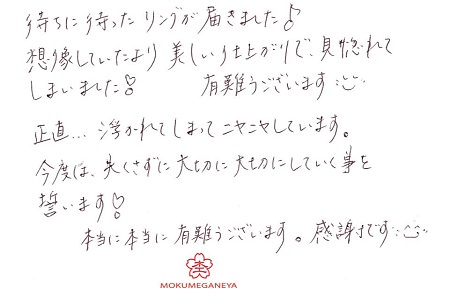 待ちに待ったリングが届きました♪
想像していたより美しい仕上がりで、見惚れて
しまいました♡ 有難うございます
正直... 浮かれてしまってニヤニヤしています。
今度は、失くさずに大切に大切にしていく事を
誓います♡
本当に本当に有難うございます。感謝です
MOKUMEGANEYA